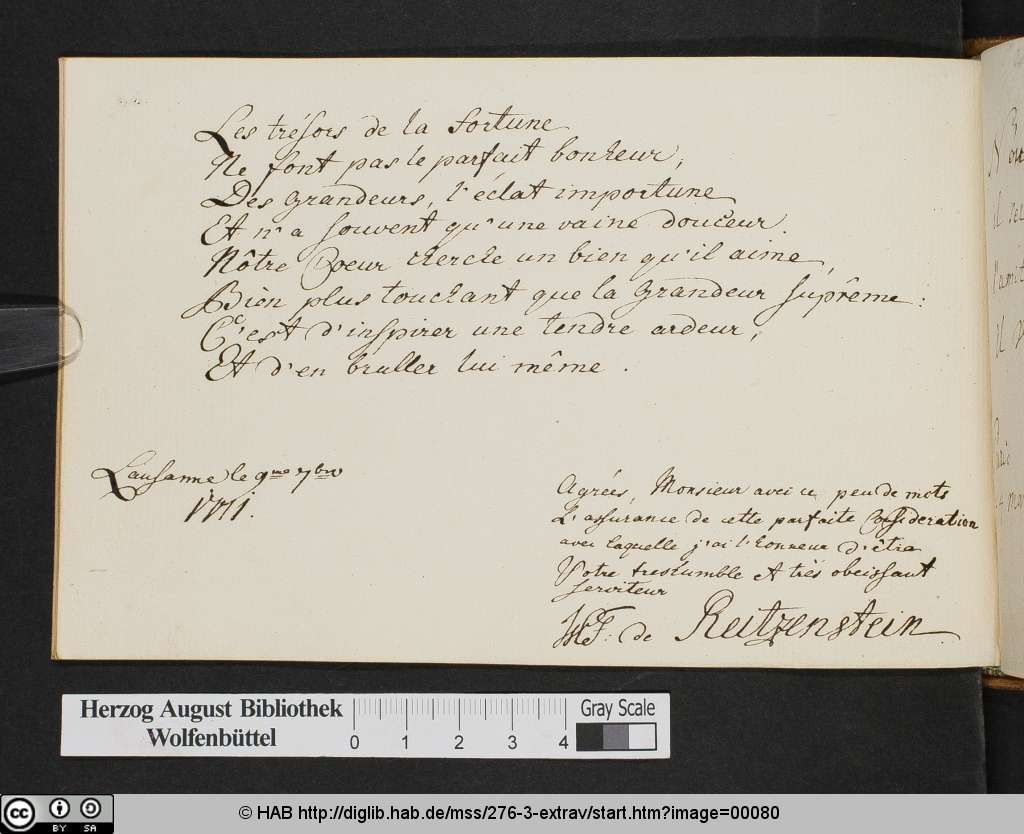 Les trésors de la fortune
Ne font pas le parfait bonheur,
Des grandeurs, l'éclat importune
Et n'a souvent qu'une vaine douceur.
Nôtre Coeur cherche un bien qu'il aime,
Bien plus touchant que la grandeur suprême:
C'est d'inspirer une tendre ardeur,
Et d'en bruller lui même.
Lausanne le 9me 7bre
Agrées, Monsieur avec ce peu de mots
L'assurance de cette parfaite Consideration
avec laquelle j'ai l'honneur d'être
Votre treshumble et très obeissant
serviteur
de Reitzenstein
Herzog August Bibliothek
Wolfenbüttel
0 1 2 3 4
Gray Scale
cc BY SA
© HAB http://diglib.hab.de/mss/276-3-extrav/start.htm?image=00080